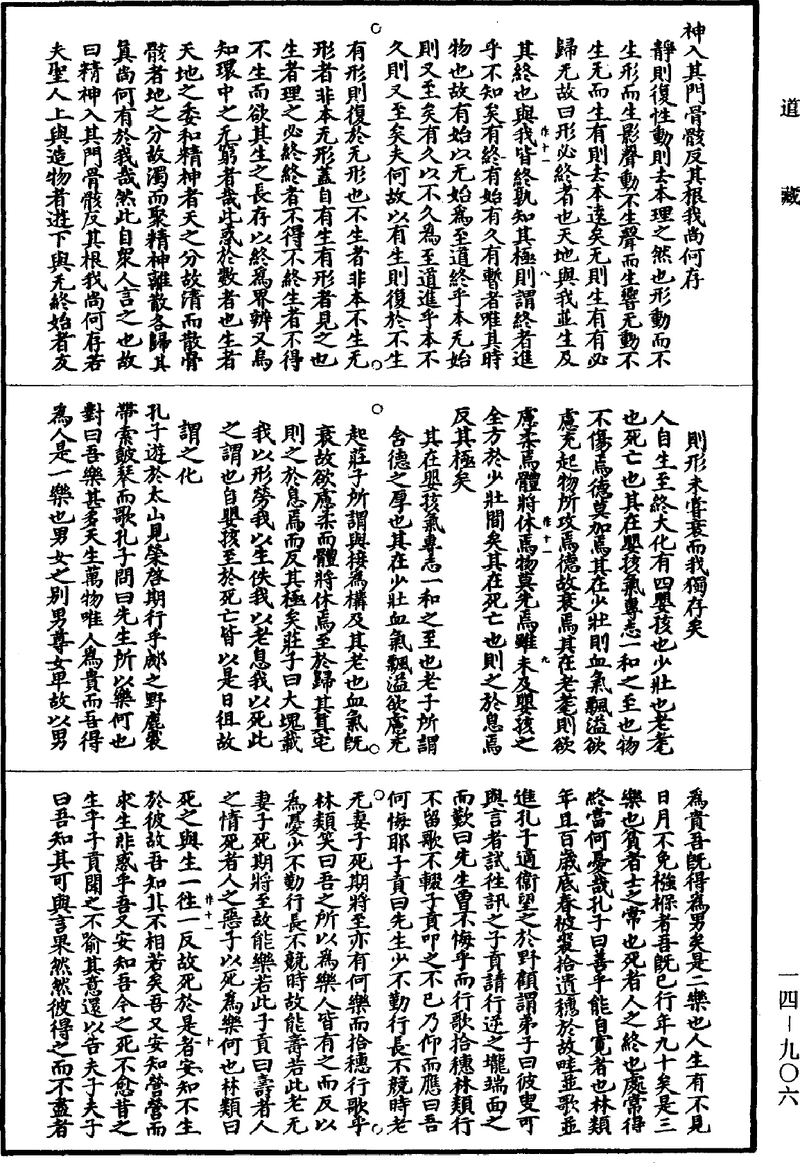 道藏
神入其門骨骸反其根我尚何存
靜則復性動則去本理之然也形動而不
生形而生影聲動不生聲而生響无動不
生无而生有則去本遠矣无則生有有必
歸无故曰形必終者也天地與我並生及
其終也與我皆終孰知其極則謂終者進
乎不知矣有終有始有久有暫者唯其時
物也故有始以无始為至道終乎本无始
則又至矣有久以不久為至道進乎本不
久則又至矣夫何故以有生則復於不生
有形則復於无形也不生者非本不生无
形者非本无形蓋自有生有形者見之也
生者理之必終終者不得不終生者不得
不生而欲其生之長存以終為畀辨又烏
知環中之无窮者哉此惑於數者也生者
天地之委和精神者天之分故清而散骨
骸者地之分故濁而聚精神離散各歸其
真尚何有於我哉然此自衆人言之也故
曰精神入其門骨骸反其根我尚何存若
夫聖人上與造物者遊下與无終始者友
則形未嘗衰而我獨存矣
人自生至終大化有四嬰孩也少壯也老耄
也死亡也其在嬰孩氣專志一和之至也物
不傷焉德莫加焉其在少壯則血氣飄溢欲
慮充起物所攻焉德故衰焉其在老耄則欲
慮柔焉體將休焉物莫先焉雖未及嬰孩之
全方於少壯間矣其在死亡也則之於息焉
反其極矣
其在嬰孩氣專志一和之至也老子所謂
含德之厚也其在少壯血氣飄溢欲慮充
起莊子所謂與接為構及其老也血氣既
衰故欲慮柔而體將休焉至於歸其真宅
則之於息焉而反其極矣莊子曰大塊載
我以形勞我以生佚我以老息我以死此
之謂也自嬰孩至於死亡皆以是日徂故
謂之化
孔子遊於太山見榮啓期行乎郕之野鹿裘
帶索鼓琴而歌孔子問曰先生所以樂何也
對曰吾樂甚多天生萬物唯人為貴而吾得
為人是一樂也男女之別男尊女卑故以男
為貴吾既得為男矣是二樂也人生有不見
日月不免襁褓者吾既已行年九十矣是三
樂也貧者士之常也死者人之終也處常得
終當何憂哉孔子曰善乎能自寬者也林類
年且百歲底春被裘拾遺穗於故畦並歌並
進孔子適衛望之於野顧謂弟子曰彼叟可
與言者試往訊之子貢請行逆之壠端面之
而歎曰先生曾不悔乎而行歌拾穗林類行
不留歌不輟子貢叩之不已乃仰而應曰吾
何悔耶子貢曰先生少不勤行長不競時老
无妻子死期將至亦有何樂而拾穗行歌乎
林類笑曰吾之所以為樂人皆有之而反以
為憂少不勤行長不競時故能壽若此老无
妻子死期將至故能樂若此子貢曰壽者人
之情死者人之惡子以死為樂何也林類曰
死之與生一往一反故死於是者安知不生
於彼故吾知其不相若矣吾又安知營營而
求生非惑乎吾又安知吾今之死不愈昔之
生乎子貢聞之不喻其意還以告夫子夫子
曰吾知其可與言果然然彼得之而不盡者
一四－九〇六